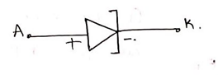 A K.
+ -.